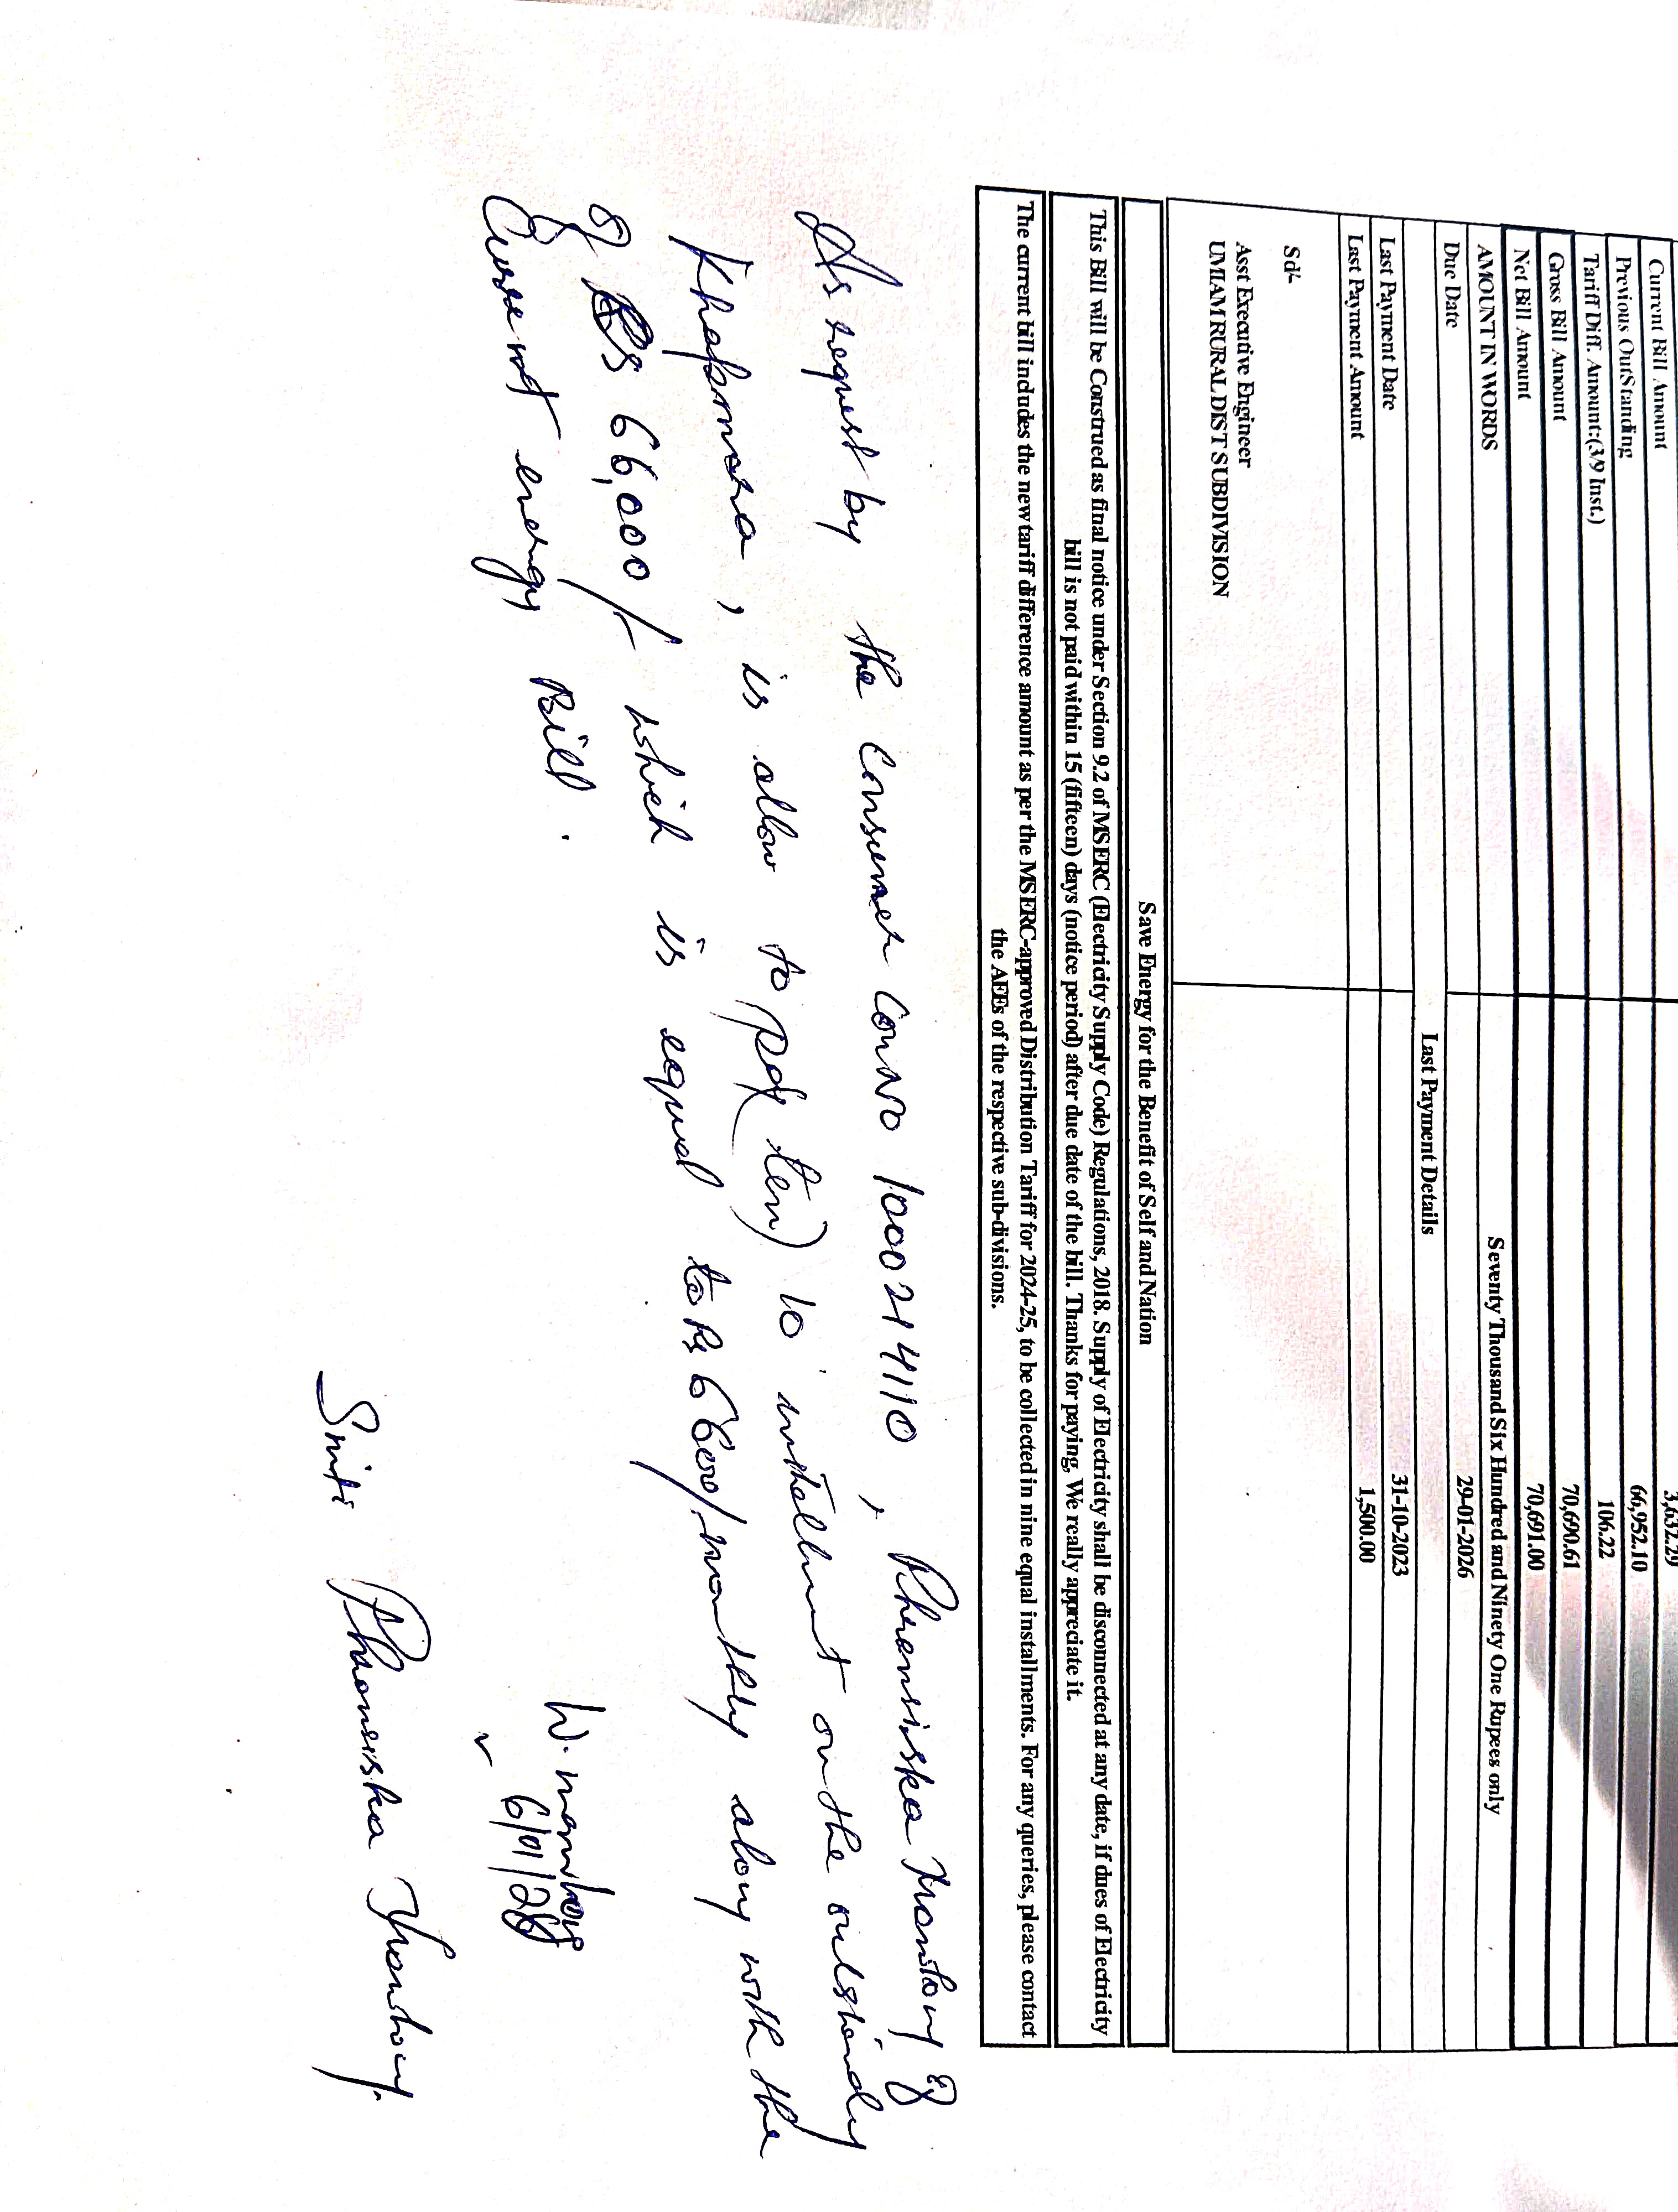 Current Bill Amount 3,632.29
Previous OutStanding 66,952.10
Tariff Diff. Amount:(3/9 Inst.) 106.22
Gross Bill Amount 70,690.61
Net Bill Amount 70,691.00
AMOUNT IN WORDS Seventy Thousand Six Hundred and Ninety One Rupees only
Due Date 29-01-2026
Last Payment Details
Last Payment Date 31-10-2023
Last Payment Amount 1,500.00
Sd/-
Asst Executive Engineer
UMIAM RURAL DIST SUBDIVISION
Save Energy for the Benefit of Self and Nation
This Bill will be Construed as final notice under Section 9.2 of MSERC (Electricity Supply Code) Regulations, 2018. Supply of Electricity shall be disconnected at any date, if dues of Electricity
bill is not paid within 15 (fifteen) days (notice period) after due date of the bill. Thanks for paying, We really appreciate it.
The current bill includes the new tariff difference amount as per the MSERC-approved Distribution Tariff for 2024-25, to be collected in nine equal installments. For any queries, please contact
the AEEs of the respective sub-divisions.
As request by the Consumer Con No 1000214110,
is allow to pay (ten) 10 installment on the outstanding
of Rs 66,000/- which is equal to Rs 6600/- monthly along with the
Current energy Bill.
6/01/26
Smti